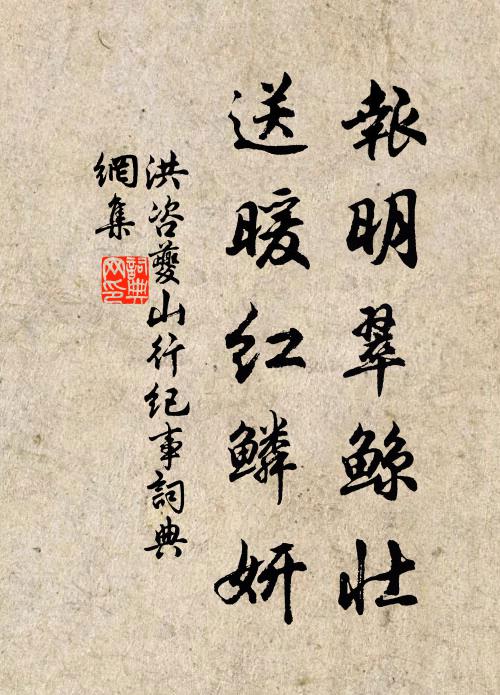 報明翠鲸壮
送暖红鱗妍
洪咨夔山行纪事詞典
網集
詞典
网印